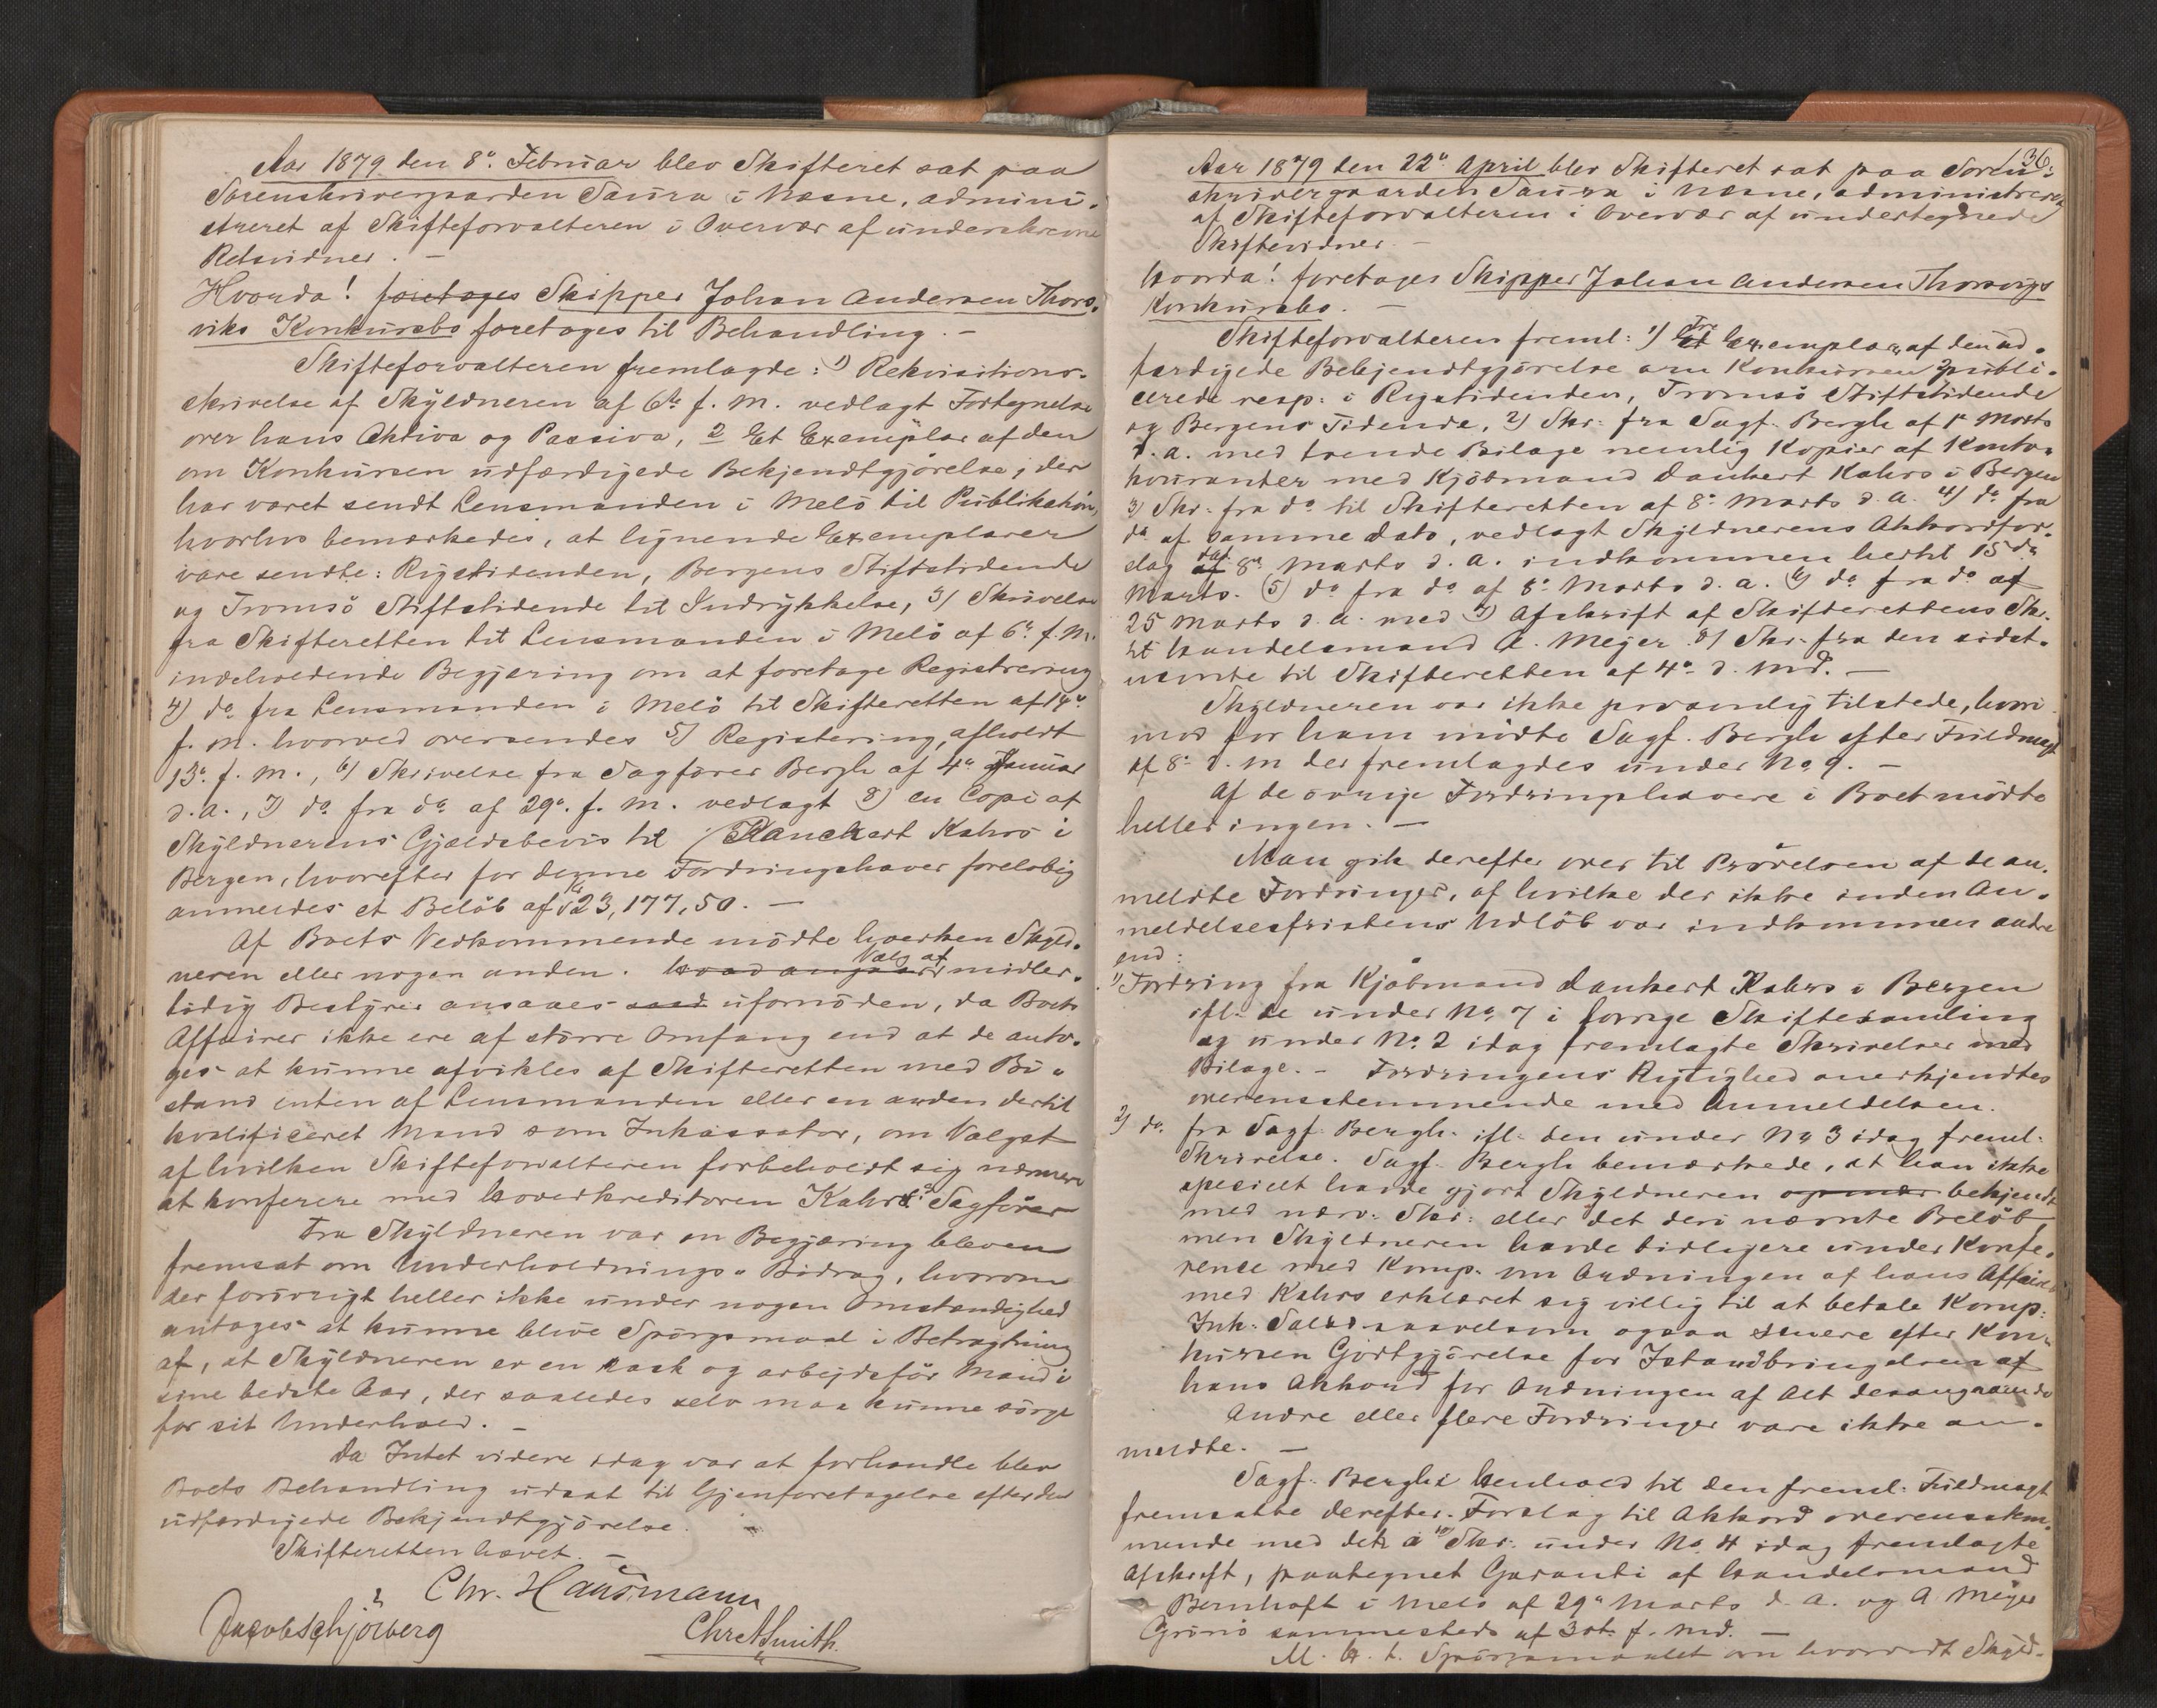 Aar 1879 den 8de Februar blev Skifteret sat paa
Sorenskrivergaarden Saura i Næsne, admini-
streret af Skifteforvalteren i Overvær af underskrevne
Retsvidner. —
Hvorda! foretages Skipper Johan Andersen Thors-
viks Konkursbo foretages til Behandling. —
Skifteforvalteren fremlagde: 1) Rekvisitions-
skrivelse af Skyldneren af 6te f. M. vedlagt Fortegnelse
over hans Aktiva og Passiva, 2 Et Exemplar af den
om Konkursen udfærdigede Bekjendtgjörelse, der
har været sendt Lensmanden i Melö til Publikation,
hvorhos bemærkedes, at lignende Exemplarer
vare sendte: Rigstidenden, Bergens Stiftstidende
og Tromsö Stiftstidende til Indrykkelse, 3) Skrivelse
fra Skifteretten til Lensmanden i Melö af 6te f. M.
indeholdende Begjæring om at foretage Registrering
4) do fra Lensmanden i Melö til Skifteretten af 14de
f. M. hvorved oversendes 5) Registering, afholdt
13de f. M., 6) Skrivelse fra Sagförer Bergh af 4de Januar
d. A., 7) do fra do af 29de f. M. vedlagt 8) en Copi af
Skyldnerens Gjældsbevis til Danckert Kahrs i
Bergen, hvorefter for denne Fordringshaver forelöbig
anmeldes et Belöb af Kr 23,177,50. —
Af Boets Vedkommende mödte hverken Skyld-
neren eller nogen anden. hvad angaar Valg af midler-
tidig Bestyrer ansaaes ufornöden, da Boets
Affairer ikke ere af större Omfang end at de anto-
ges at kunne afvikles af Skifteretten med Bi-
stand enten af Lensmanden eller en anden dertil
kvalificeret Mand som Inkassator, om Valget
af hvilken Skifteforvalteren forbeholdt sig nærmere
at konferere med Hovedkreditoren Kahrs's Sagförer
Fra Skyldneren var en Begjæring bleven
fremsat om Underholdnings-Bidrag, hvorom
der forövrigt heller ikke under nogen Omstændighed
antages at kunne blive Spörgsmaal i Betragtning
af, at Skyldneren er en rask og arbejdsför Mand i
sine bedste Aar, der saaledes selv maa kunne sörge
for sit Underhold. —
Da Intet videre idag var at forhandle blev
Boets Behandling udsat til Gjenforetagelse efter den
udfærdigede Bekjendtgjörelse.
Skifteretten hævet. —
Chr. Hausmann
Jacob Schjölberg
Chr. A Smith.
36.
Aar 1879 den 22de April blev Skifteret sat paa Soren-
skrivergaarden Saura i Næsne, administreret
af Skifteforvalteren i Overvær af undertegnede
Skiftevidner. —
Hvorda! foretages Skipper Johan Andersen Thorsvigs
Konkursbo. —
Skifteforvalteren freml: 1) Et Tre Exemplar af den ud-
færdigede Bekjendtgjörelse om Konkursen publi-
cerede resp: i Rigstidenden, Tromsö Stiftstidende
og Bergens Tidende, 2) Skr: fra Sagf. Bergh af 1de Marts
d. A. med trende Bilage nemlig Kopier af Konto-
kouranter med Kjöbmand Dankert Kahrs i Bergen
3) Skr: fra do til Skifteretten af 8de Marts d. A. 4) do fra
do af samme Dato, vedlagt Skyldnerens Akkordfor-
slag dat 8de Marts d. A. indkommen hertil 15de
Marts. 5) do fra do af 8de Marts d. A. 6) do fra do af
25 Marts d. A. med 7) Afskrift af Skifterettens Skr.
til Handelsmand A. Meyer. 8) Skr. fra den sidst-
nævnte til Skifteretten af 4de d. Md. —
Skyldneren var ikke personlig tilstede, hvori-
mod for ham mödte Sagf. Bergh efter Fuldmagt
af 8de d. M der fremlagdes under No 9. —
Af de övrige Fordringshavere i Boet mödte
heller ingen. —
Man gik derefter over til Prövelsen af de an-
meldte Fordringer, af hvilke der ikke inden An-
meldelsesfristens Udlöb var indkommen andre
end:
1) Fordring fra Kjöbmand Dankert Kahrs i Bergen
ifl. de under No 7 i forrige Skiftesamling
og under No 2 idag fremlagte Skrivelser med
Bilage. — Fordringens Rigtighed anerkjendtes
overensstemmende med Anmeldelsen.
2) do fra Sagf. Bergh ifl: den under No 3 idag freml:
Skrivelse. Sagf. Bergh bemærkede, at han ikke
specielt havde gjort Skyldneren bekjendt
med nærv: Skr: eller det deri nævnte Belöb,
men Skyldneren havde tidligere under Konfe-
rence med Komp. om Ordningen af hans Affaire
med Kahrs erklæret sig villig til at betale Komp:
Ink: Salær saavelsom ogsaa senere efter Kon-
kursen Godtgjörelse for Istandbringelsen af
hans Akkord for Ordningen af Alt desangaaende
Andre eller flere Fordringer vare ikke an-
meldte. —
Sagf. Bergh i Henhold til den freml. Fuldmagt
fremsatte derefter Forslag til Akkord overensstem-
mende med det i 10) Skr: under No. 4 idag fremlagte
Afskrift, paategnet Garanti af Handelsmand
Bernhoft i Melö af 29de Marts d. A. og A Meyer
Grönö sammesteds af 30te f. Md. —
M. H. t. Spörgsmaalet om hvorvidt Skyld-